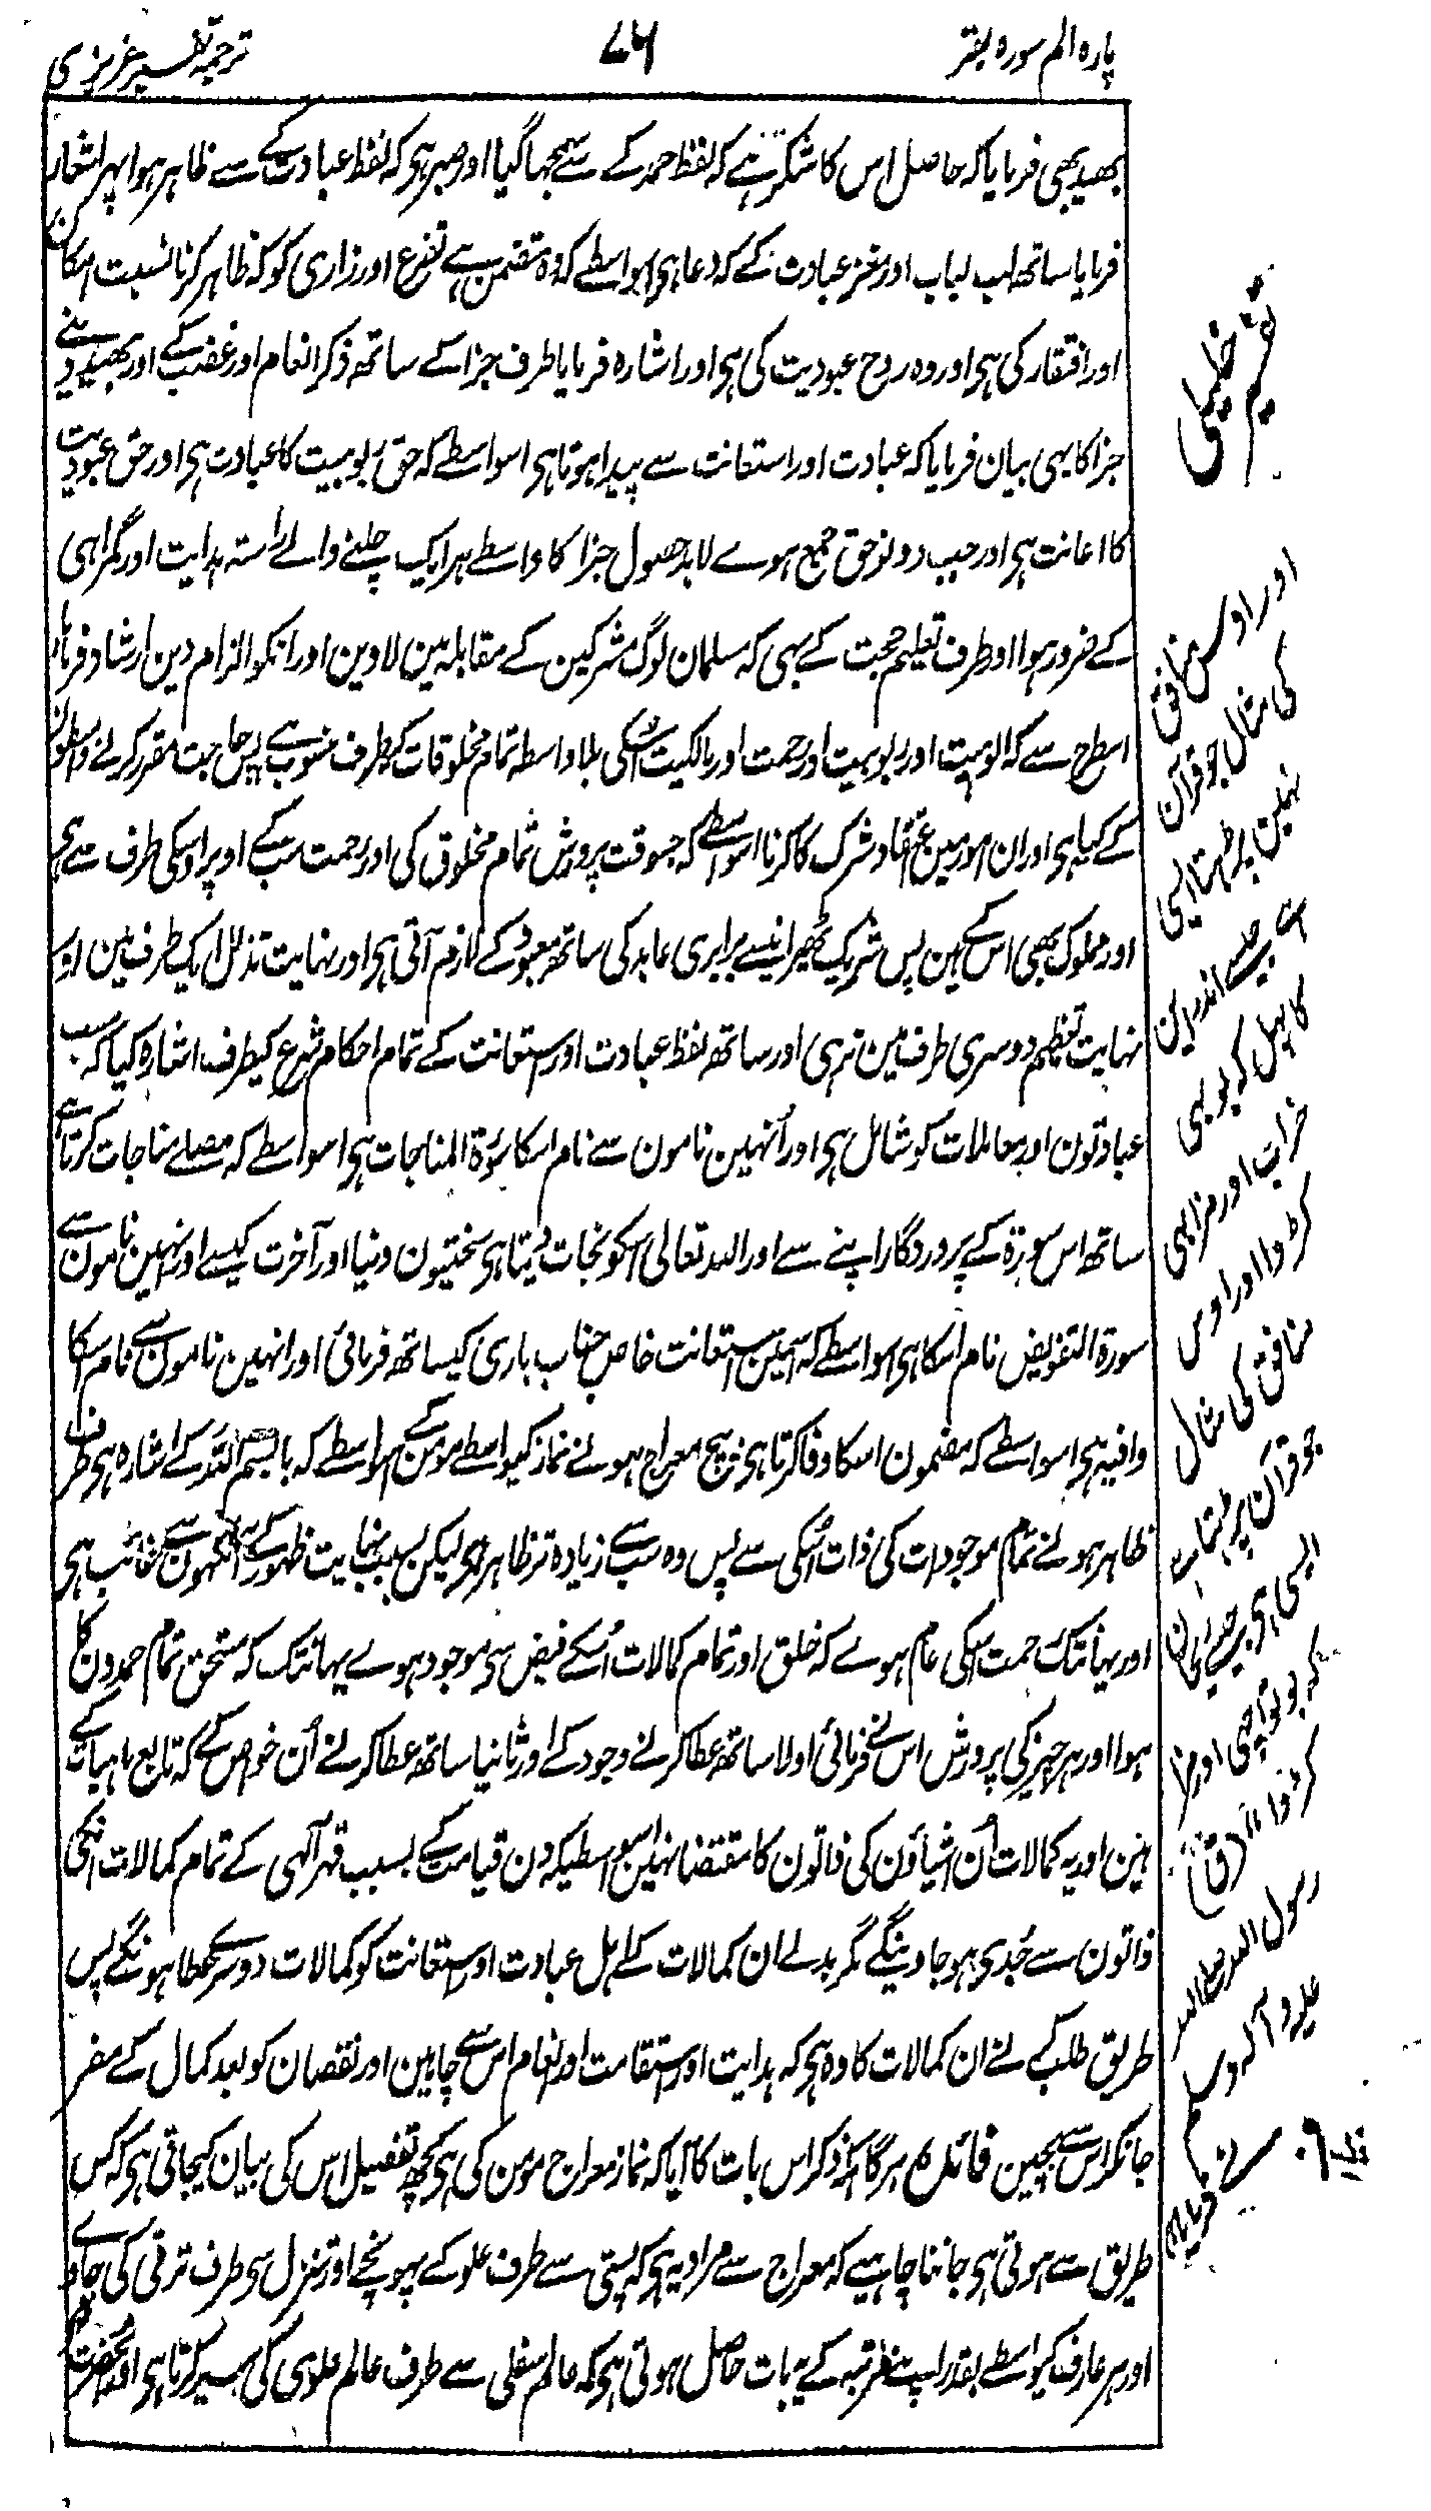 پارہ الم سورہ بقر
۷۶
ترجمۂ تفسیر عزیزی
بھید بھی فرمایا کہ حاصل اس کا شکر ہے کہ لفظ حمد کے سے سمجھا گیا اور صبر ہی کہ لفظ عبادت کے سے ظاہر ہوا پھر اشعار
فرمایا ساتھ لب لباب اور مغز عبادت کے کہ دعا ہی اسواسطے کہ وہ متضمن ہے تضرع اور زاری کو کہ ظاہر کرنا نسبت امکان
اور افتقار کی ہی اور وہ روح عبودیت کی ہی اور اشارہ فرمایا طرف جزا کے ساتھ ذکر انعام اور غضب کے اور بھید دینے
جزا کا بھی بیان فرمایا کہ عبادت اور استعانت سے پیدا ہوتا ہی اسواسطے کہ حق ربوبیت کا عبادت ہی اور حق عبودیت
کا اعانت ہی اور جب دونو حق جمع ہوے لابد حصول جزا کا واسطے ہر ایک چلنے والے راستہ ہدایت اور گمراہی
کے ضرور ہوا اور طرف تعلیم حجت کے بہی کہ مسلمان لوگ مشرکین کے مقابلہ مین لاوین اور انکو الزام دین ارشاد فرمایا
اسطرح سے کہ الوہیت اور ربوبیت اور رحمت اور مالکیت اُسکی بلا واسطہ تمام مخلوقات کیطرف منسوب ہے پس حاجت مقرر کرنے واسطون
کے کیا ہی اور ان امور مین اعتقاد شرک کا کرنا اسواسطے کہ جسوقت پرورش تمام مخلوق کی اور رحمت سب کے اوپر اوسکی طرف سے ہی
اور مملوک بھی اس کے ہین پس شریک ٹھہرانیسے برابری عابد کی ساتھ معبود کے لازم آتی ہی اور نہایت تذلل ایک طرف مین اور
نہایت تعظیم دوسری طرف مین نرہی اور ساتھ لفظ عبادت اور استعانت کے تمام احکام شرع کیطرف اشارہ کیا کہ سب
عبادتون اور معاملات کو شامل ہی اور اُنہین نامون سے نام اسکا سورۃ المناجات ہی اسواسطے کہ مصلے مناجات کرتا ہے
ساتھ اس سورۃ کے پروردگار اپنے سے اور اللہ تعالی اسکو نجات دیتا ہی سختیون دنیا اور آخرت کیسے اور انہین نامون سے
سورۃ التفویض نام اسکا ہی اسواسطے کہ اسمین استعانت خاص جناب باری کیساتھ فرمائی اور انہین نامون سے نام اسکا
وافیہ ہی اسواسطے کہ مضمون اسکا وفا کرتا ہی بیچ معراج ہونے نماز کیواسطے مومن کے اسواسطے کہ با بسم اللہ کے اشارہ ہی طرف
ظاہر ہونے تمام موجودات کی ذات اُسکی سے پس وہ سب سے زیادہ تر ظاہر ہی لیکن بسبب نہایت ظہور کے آنکھون سے غائب ہی
اور یہانتک رحمت اسکی عام ہوے کہ خلق اور تمام کمالات اُسکے فیض سی موجود ہوے یہانتک کہ مستحق تمام حمدون کا
ہوا اور ہر چیز کی پرورش اس نے فرمائی اولا ساتھ عطا کرنے وجود کے اور ثانیا ساتھ عطا کرنے اُن خواص کے کہ تابع ماہیات کے
ہین اور یہ کمالات اُن اشیاؤن کی ذاتون کا مقتضا نہین اسواسطیکہ دن قیامت کے بسبب قہر آلہی کے تمام کمالات اُنکی
ذاتون سے جُدی ہو جاوینگے مگر بدلے ان کمالات کے اہل عبادت اور استعانت کو کمالات دوسرے عطا ہونگے پس
طریق طلب کرنے ان کمالات کا وہ ہی کہ ہدایت اور استقامت اور انعام اس سے چاہین اور نقصان کو بعد کمال کے مضر
جانکر اس سے بچین فائدہ ہرگاہ کہ ذکر اس بات کا آیا کہ نماز معراج مومن کی ہی کچھ تفصیل اس کی بیان کیجاتی ہی کہ کس
طریق سے ہوتی ہی جاننا چاہیے کہ معراج سے مراد یہ ہی کہ پستی سے طرف علو کے پہونچے اور تنزل سی طرف ترقی کی جاوے
اور ہر عارف کیواسطے بقدر اپنے مرتبہ کے یہ بات حاصل ہوتی ہی کہ عالم سفلی سے طرف عالم علوی کی سیر کرتا ہی اور آنحضرت
اور اوس منافق
کی مثال جو قرآن
نہین پڑھتا ایسی
ہی جیسے اندراین
کا پہل کہ بو بہی
خراب اور مزا بہی
کڑوا اور اوس
منافق کی مثال
جو قرآن پڑھتا ہے
ایسی ہی جیسے ریحان
کہ بو تو اچھی اور مزا
کڑوا (ق)
رسول اللہ صلے اللہ
علیہ و آلہ وسلم
نے فرمایا